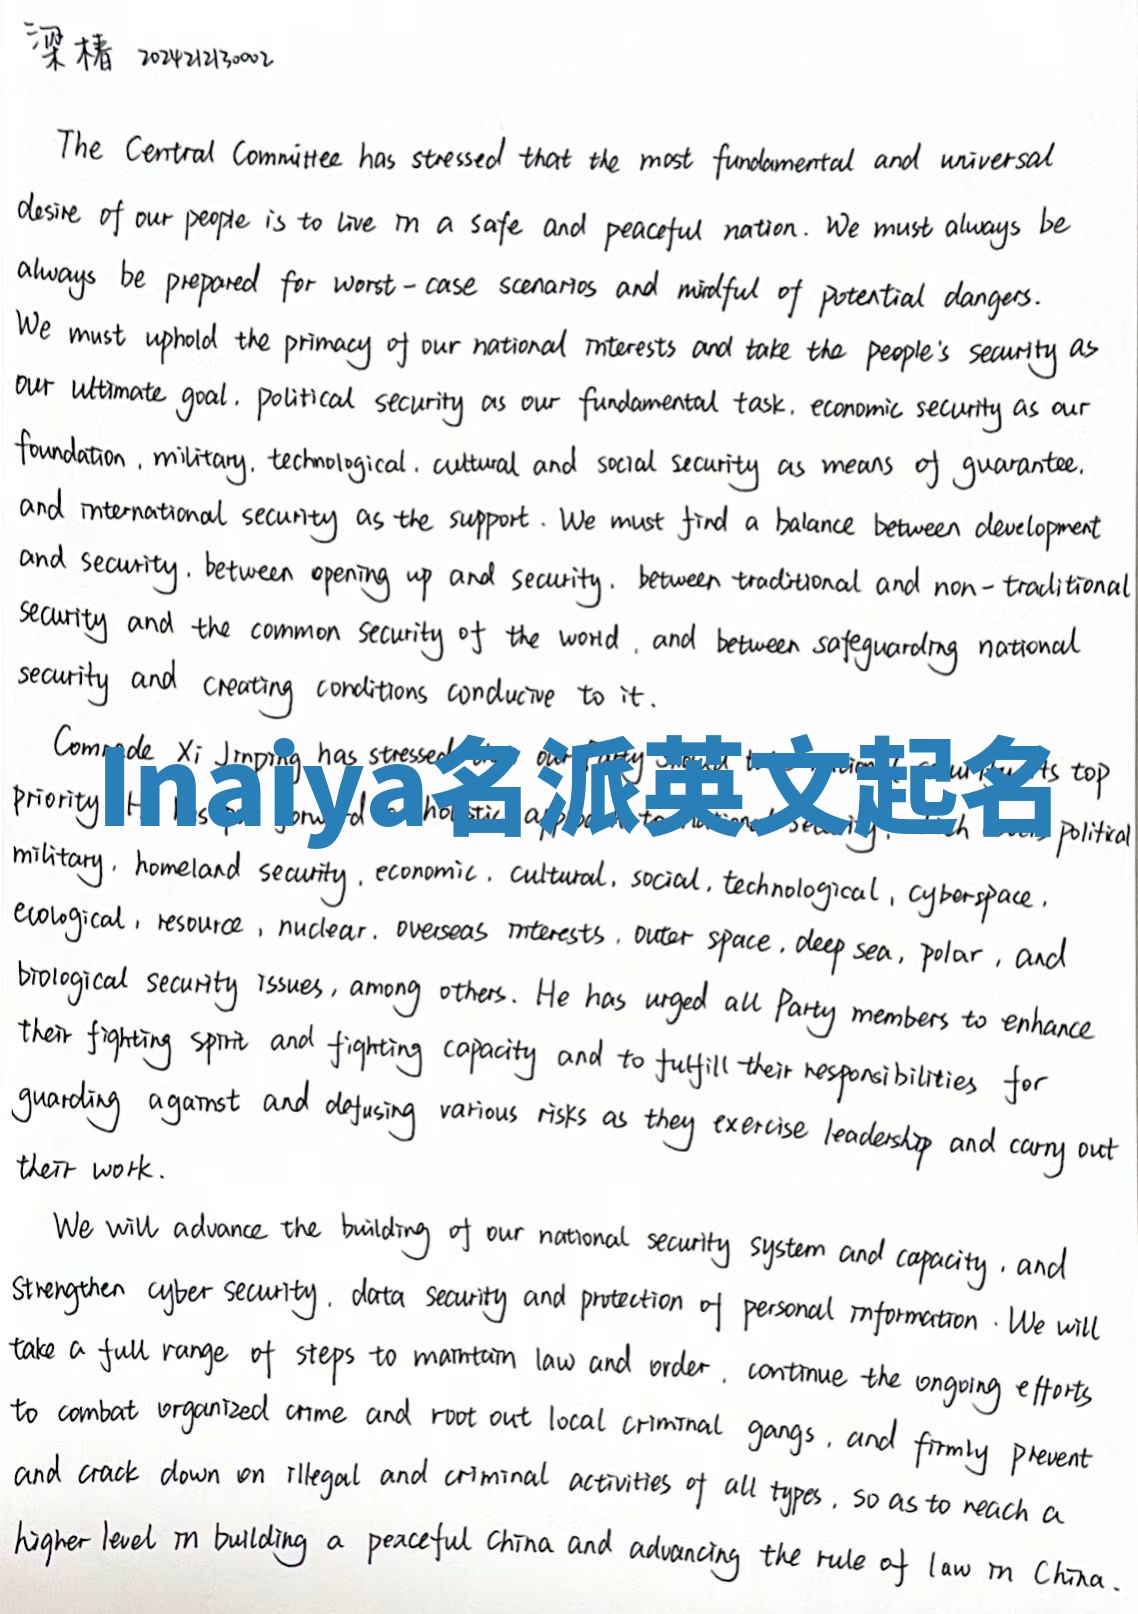 梁椿 2024212130002
The Central Committee has stressed that the most fundamental and universal
desire of our people is to live in a safe and peaceful nation. We must always be
always be prepared for worst-case scenarios and mindful of potential dangers.
We must uphold the primacy of our national interests and take the people's security as
our ultimate goal, political security as our fundamental task, economic security as our
foundation, military, technological, cultural and social security as means of guarantee,
and international security as the support. We must find a balance between development
and security, between opening up and security, between traditional and non-traditional
security and the common security of the world, and between safeguarding national
security and creating conditions conducive to it.
Comrade Xi Jinping has stressed our Party top
Inaiya名派英文起名
priority holistic security, political
military, homeland security, economic, cultural, social, technological, cyberspace,
ecological, resource, nuclear, overseas interests, outer space, deep sea, polar, and
biological security issues, among others. He has urged all Party members to enhance
their fighting spirit and fighting capacity and to fulfill their responsibilities for
guarding against and defusing various risks as they exercise leadership and carry out
their work.
We will advance the building of our national security system and capacity, and
strengthen cyber security, data security and protection of personal information. We will
take a full range of steps to maintain law and order, continue the ongoing efforts
to combat organized crime and root out local criminal gangs, and firmly prevent
and crack down on illegal and criminal activities of all types, so as to reach a
higher level in building a peaceful China and advancing the rule of law in China.